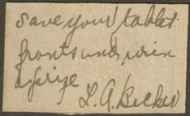 Save your tablet
fronts and win
a prize
L. A. Becker